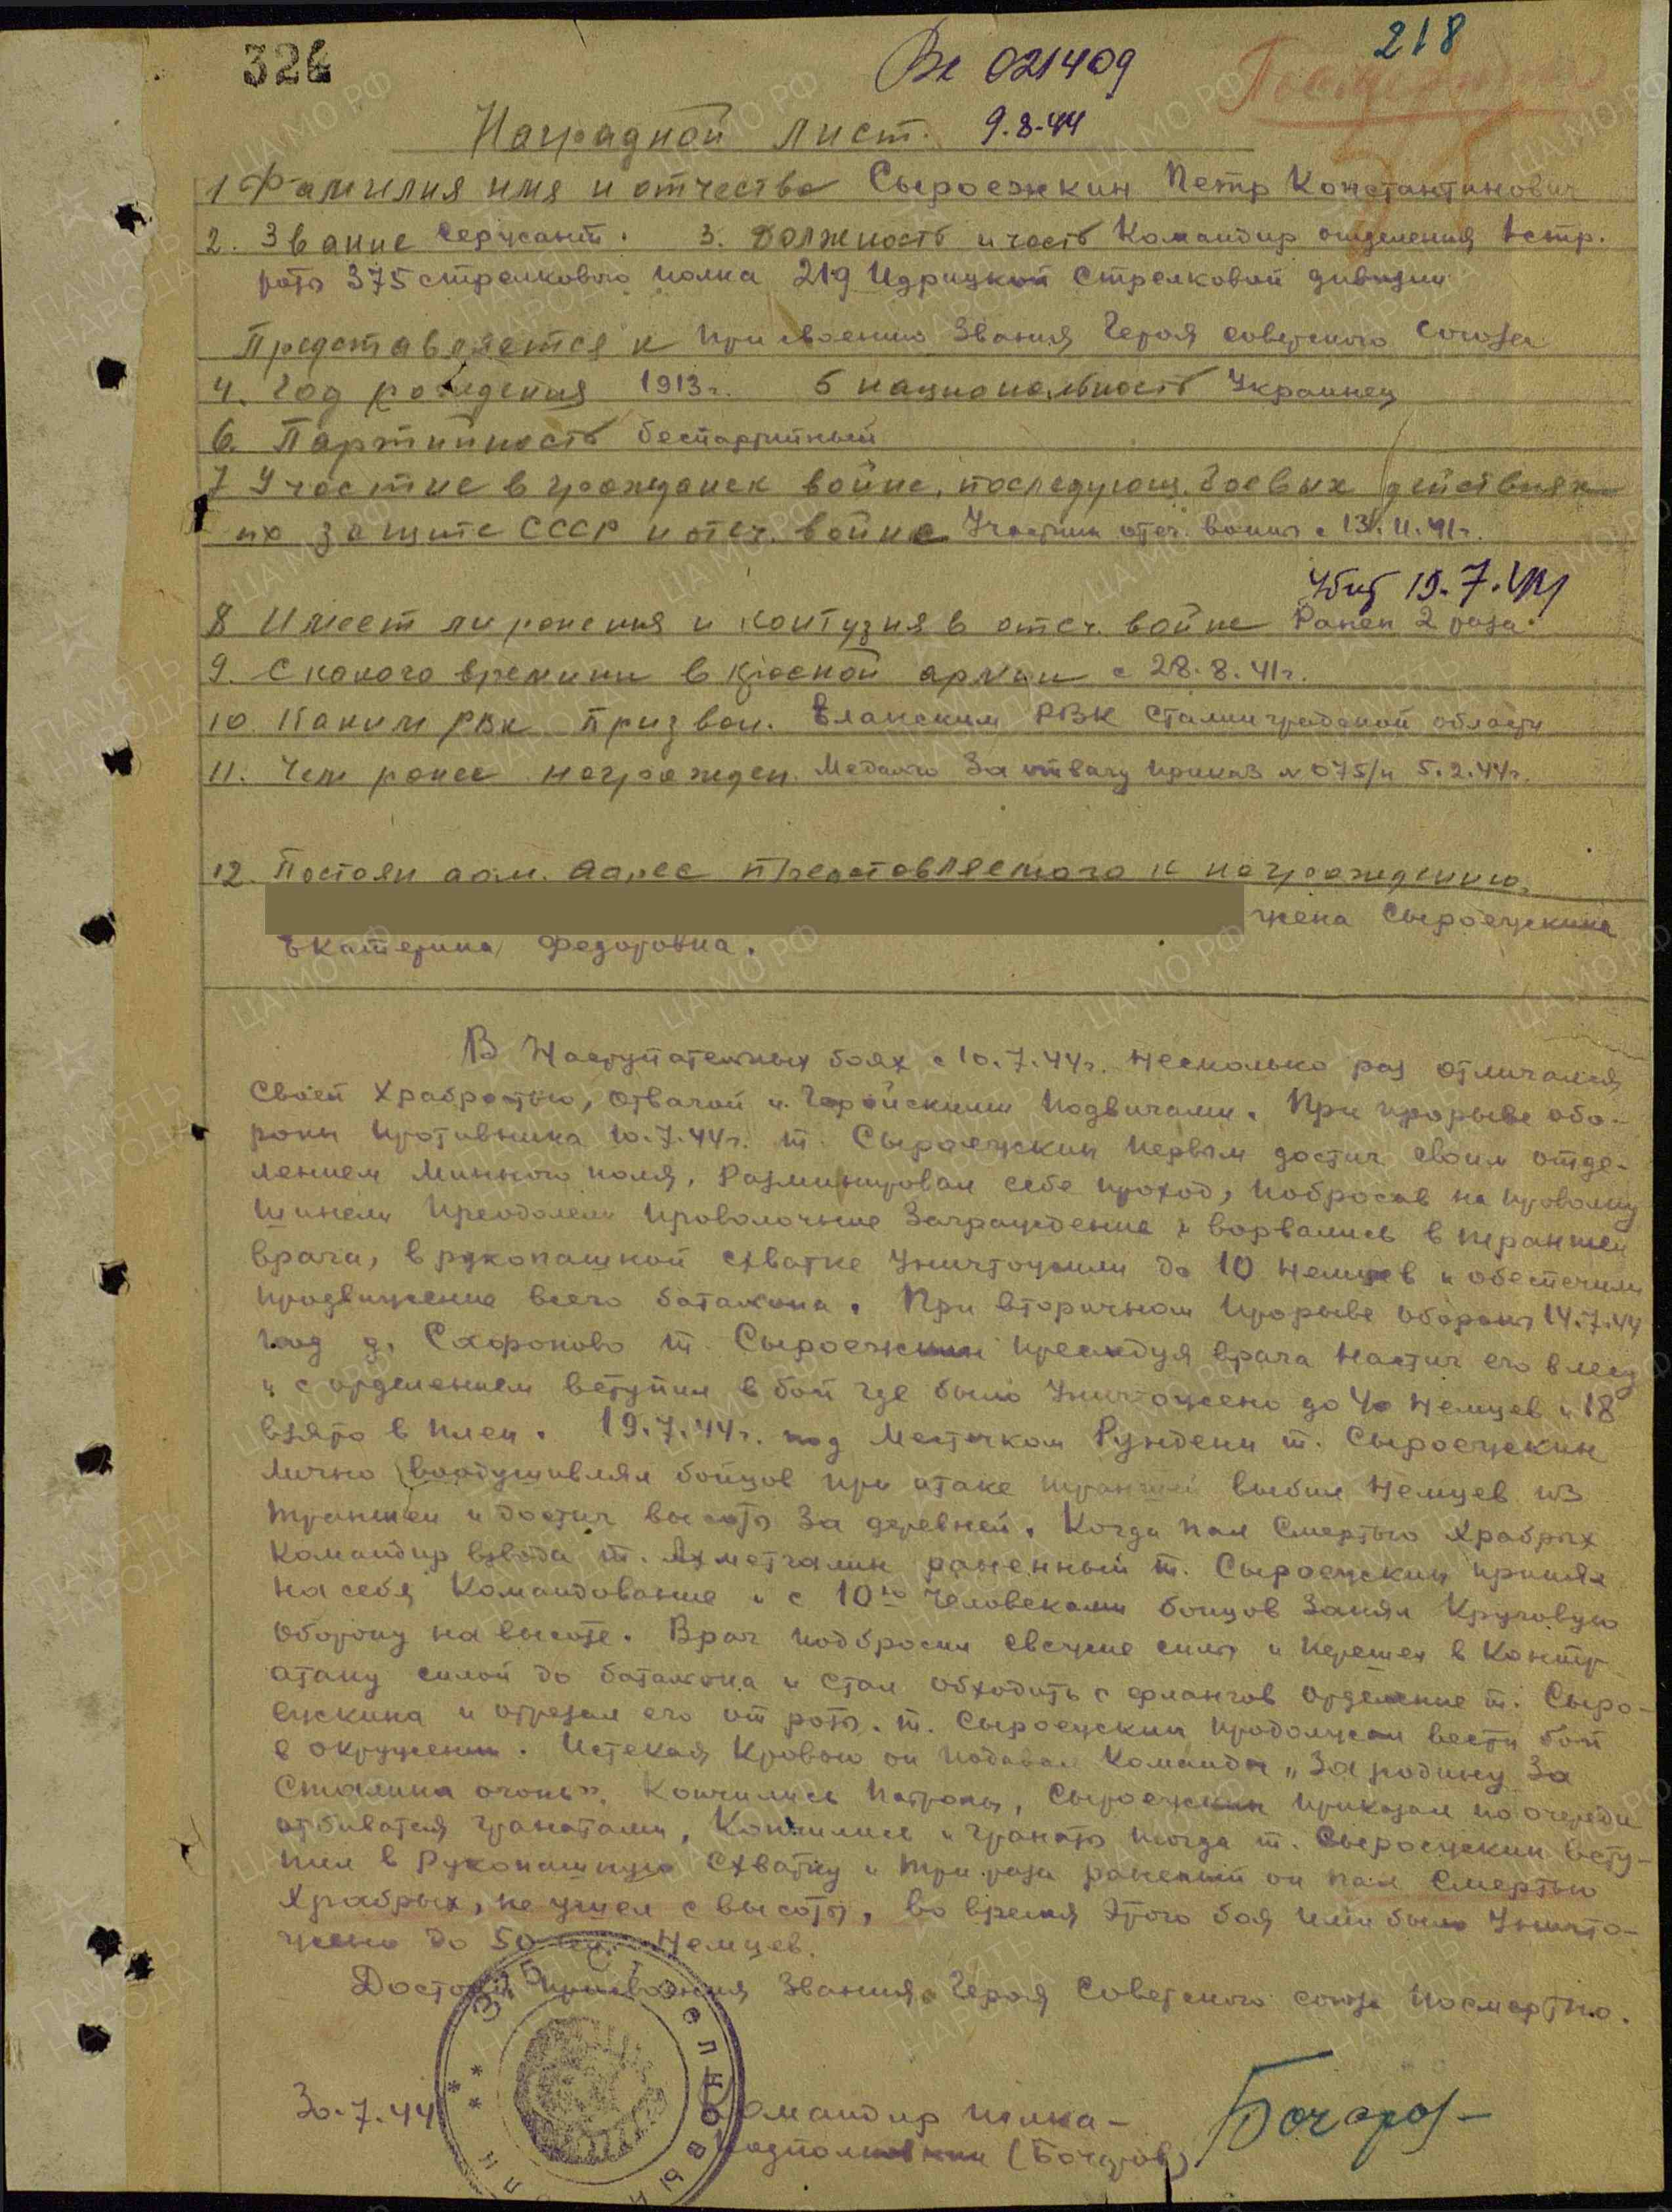 326
Ве 021409
218
Посмертно
Наградной лист. 9.8.44
1 Фамилия имя и отчество Сыроежкин Петр Константинович
2. Звание Сержант. 3. Должность и часть Командир отделения 1 стр.
роты 375 стрелкового полка 219 Идрицкой Стрелковой дивизии
Представляется к присвоению Звания Героя советского Союза
4. Год рождения 1913г. 5 национальность Украинец
6. Партийность беспартийный
7 Участие в гражданск войне, последующ. боевых действиях
по защите СССР и отеч. войне Участник отеч. войны с 13.11.41г.
Убит 19.7.44
8 Имеет ли ранения и контузия в отеч. войне Ранен 2 раза.
9. С какого времини в красной армии с 28.8.41г.
10. Каким РВК призван. Еланским РВК Сталинградской области
11. Чем ранее награжден. Медалью За отвагу Приказ № 075/н 5.2.44г.
12. Постоян дом. адрес представляемого к награждению.
жена Сыроежкина
Екатерина Федоровна.
В Наступательных боях с 10.7.44г. несколько раз отличался
своей храбростью, отвагой и Геройскими подвигами. При прорыве обо-
роны противника 10.7.44г. т. Сыроежкин первым достиг своим отде-
лением минного поля, Разминировал себе проход, побросав на проволку
шинели преодолели проволочные Заграждение и ворвались в траншеи
врага, в рукопашной схватке уничтожили до 10 немцев и обеспечили
продвижение всего батальона. При вторичном прорыве обороны 14.7.44
под д. Сафоново т. Сыроежкин преследуя врага настиг его в лесу
и с отделением вступил в бой где было уничтожено до 40 немцев и 18
взято в плен. 19.7.44г. под Местечком Рундени т. Сыроежкин
лично воодушевлял бойцов при атаке траншей выбил немцев из
траншеи и достиг высоты за деревней. Когда пал Смертью храбрых
командир взвода т. Ахметгалин раненный т. Сыроежкин принял
на себя Командование и с 10ю человеками бойцов Занял Круговую
оборону на высоте. Враг подбросил свежие силы и перешел в контр
атаку силой до батальона и стал обходить с флангов отделение т. Сыро-
ежкина и отрезал его от роты. т. Сыроежкин продолжал вести бой
в окружении. Истекая Кровью он подавал Команды „За родину За
Сталина огонь". Кончились патроны, Сыроежкин приказал по очереди
отбиватся гранатами, Кончились и гранаты тогда т. Сыроежкин всту-
пил в Рукопашную Схватку и три раза раненый он пал Смертью
храбрых, не ушел с высоты, во время этого боя ими было уничто-
жено до 50 чел. немцев.
Достоин присвоения Звания Героя Советского союза посмертно.
30.7.44
Командир полка –
подполковник (Бочаров)
Бочаров